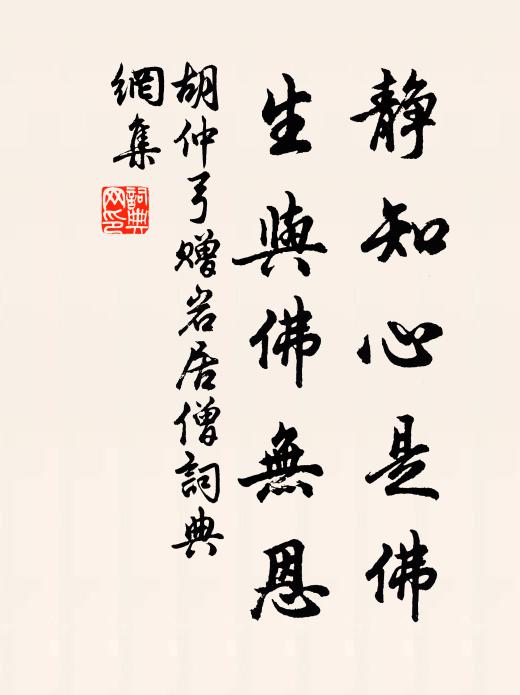 靜知心是佛
生與佛無恩
胡仲弓贈岩居僧詞典
網集
詞典網印